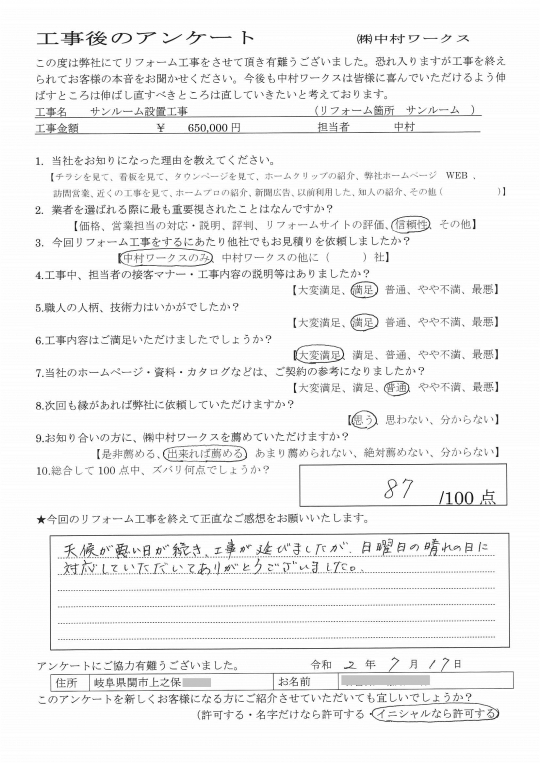 工事後のアンケート ㈱中村ワークス
この度は弊社にてリフォーム工事をさせて頂き有難うございました。恐れ入りますが工事を終え
られてお客様の本音をお聞かせください。今後も中村ワークスは皆様に喜んでいただけるよう伸
ばすところは伸ばし直すべきところは直していきたいと考えております。
工事名 サンルーム設置工事 （リフォーム箇所 サンルーム ）
工事金額 ￥ 650,000 円 担当者 中村
1. 当社をお知りになった理由を教えてください。
【チラシを見て、看板を見て、タウンページを見て、ホームクリップの紹介、弊社ホームページ WEB 、
訪問営業、近くの工事を見て、ホームプロの紹介、新聞広告、以前利用した、知人の紹介、その他（ ）】
2. 業者を選ばれる際に最も重要視されたことはなんですか？
【価格、営業担当の対応・説明、評判、リフォームサイトの評価、信頼性、その他】
3. 今回リフォーム工事をするにあたり他社でもお見積りを依頼しましたか？
【中村ワークスのみ、中村ワークスの他に（ ）社】
4.工事中、担当者の接客マナー・工事内容の説明等はありましたか？
【大変満足、満足、普通、やや不満、最悪】
5.職人の人柄、技術力はいかがでしたか？
【大変満足、満足、普通、やや不満、最悪】
6.工事内容はご満足いただけましたでしょうか？
【大変満足、満足、普通、やや不満、最悪】
7.当社のホームページ・資料・カタログなどは、ご契約の参考になりましたか？
【大変満足、満足、普通、やや不満、最悪】
8.次回も縁があれば弊社に依頼していただけますか？
【思う、思わない、分からない】
9.お知り合いの方に、㈱中村ワークスを薦めていただけますか？
【是非薦める、出来れば薦める、あまり薦められない、絶対薦めない、分からない】
10.総合して 100 点中、ズバリ何点でしょうか？
87 /100 点
★今回のリフォーム工事を終えて正直なご感想をお願いいたします。
天候が悪い日が続き、工事が延びましたが、日曜日の晴れの日に
対応していただいてありがとうございました。
アンケートにご協力有難うございました。 令和 2 年 7 月 17 日
住所 岐阜県関市上之保 お名前
このアンケートを新しくお客様になる方にご紹介させていただいても宜しいでしょうか？
（許可する・名字だけなら許可する・イニシャルなら許可する）